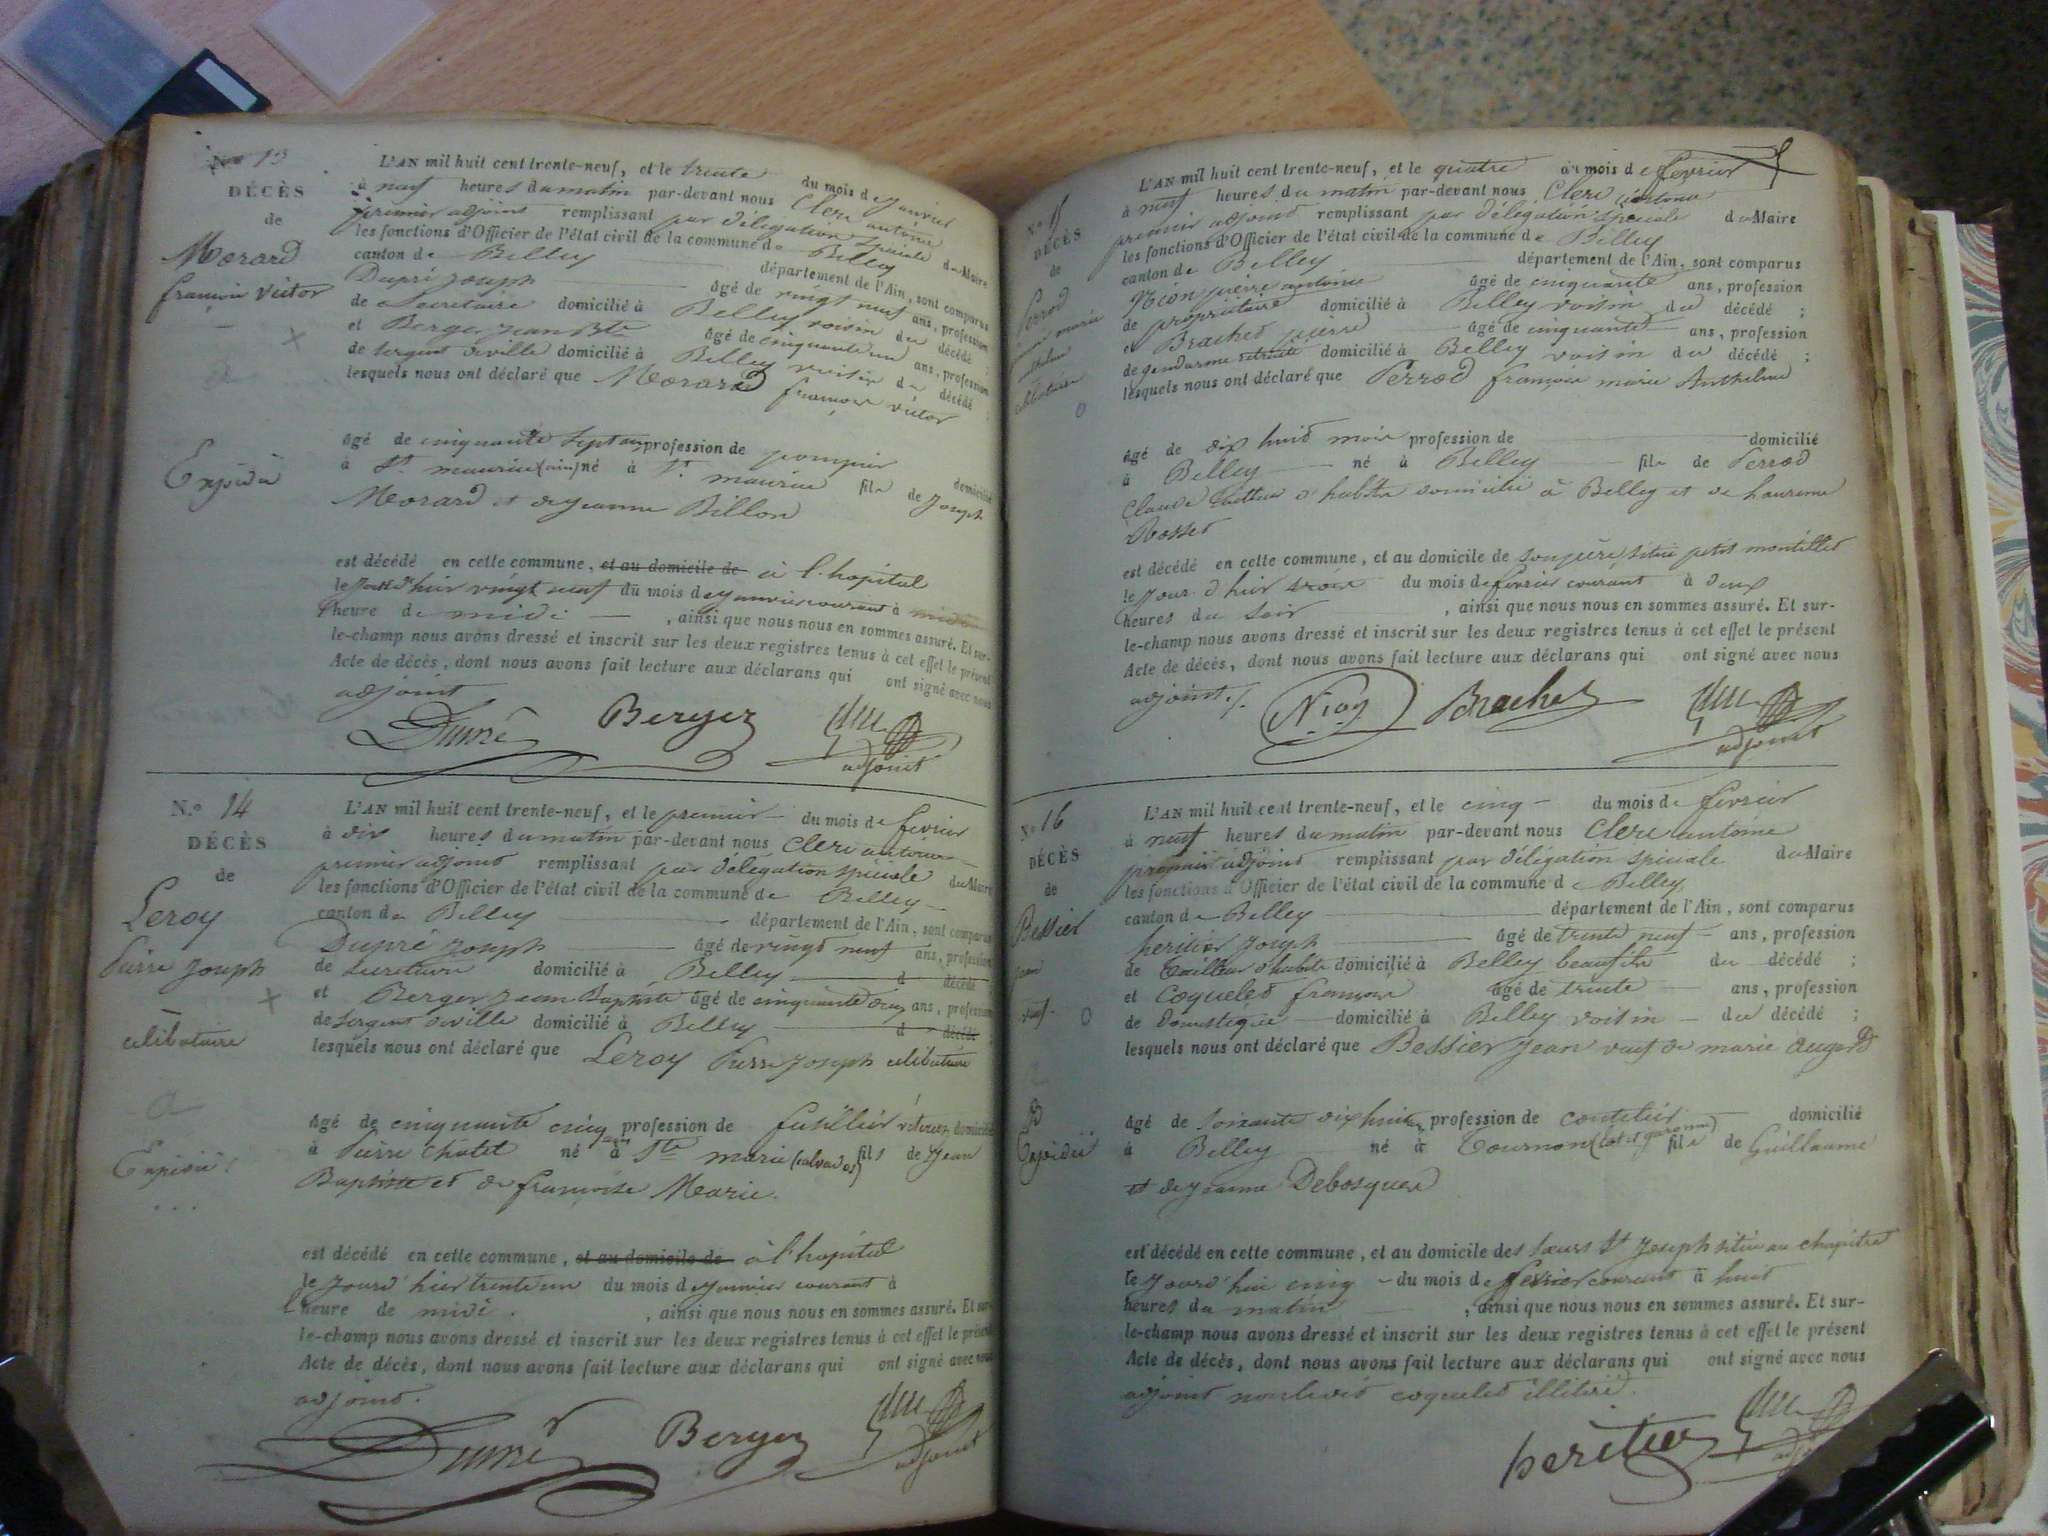 N.º 13
DÉCÈS
de
Morard
françois victor
Expédié
L'AN mil huit cent trente-neuf, et le trente du mois de janvier
à neuf heures du matin par-devant nous Clerc antoine
premier adjoint remplissant par délégation spéciale du Maire
les fonctions d'Officier de l'état civil de la commune de Belley
canton de Belley département de l'Ain, sont comparus
Dupré joseph âgé de vingt neuf ans, profession
de Secretaire domicilié à Belley voisin du décédé ;
et Berger jean Bte âgé de cinquante un ans, profession
de sergent de ville domicilié à Belley voisin du décédé ;
lesquels nous ont déclaré que Morard françois victor
âgé de cinquante sept ans profession de domicilié
à St maurice (ain) né à St maurice fils de joseph
Morard et de jeanne Billon
est décédé en cette commune, et au domicile de à l'hopital
le jour d'hier vingt neuf du mois de janvier courant à
heure de midi , ainsi que nous nous en sommes assuré. Et sur-
le-champ nous avons dressé et inscrit sur les deux registres tenus à cet effet le présent
Acte de décès, dont nous avons fait lecture aux déclarans qui ont signé avec nous
adjoint
Dupré Berger Clerc
adjoint
N.º 14
DÉCÈS
de
Leroy
Pierre joseph
célibataire
Expédié
L'AN mil huit cent trente-neuf, et le premier du mois de fevrier
à dix heures du matin par-devant nous Clerc antoine
premier adjoint remplissant par délégation spéciale du Maire
les fonctions d'Officier de l'état civil de la commune de Belley
canton de Belley département de l'Ain, sont comparus
Dupré joseph âgé de vingt neuf ans, profession
de Secretaire domicilié à Belley d décédé
et Berger jean Baptiste âgé de cinquante deux ans, profession
de sergent de ville domicilié à Belley d décédé
lesquels nous ont déclaré que Leroy Pierre joseph célibataire
âgé de cinquante cinq ans profession de fusillier vétéran domicilié
à Pierre châtel né à Ste marie (calvados) fils de jean
Baptiste et de françoise Marie.
est décédé en cette commune, et au domicile de à l'hopital
le jour d'hier trente un du mois de janvier courant à
l'heure de midi. , ainsi que nous nous en sommes assuré. Et sur-
le-champ nous avons dressé et inscrit sur les deux registres tenus à cet effet le présent
Acte de décès, dont nous avons fait lecture aux déclarans qui ont signé avec nous
adjoint.
Dupré Berger Clerc
adjoint
N.º 15
DÉCÈS
de
Perrod
marie
célibataire
L'AN mil huit cent trente-neuf, et le quatre du mois de fevrier
à neuf heures du matin par-devant nous Clerc antoine
premier adjoint remplissant par délégation spéciale du Maire
les fonctions d'Officier de l'état civil de la commune de Belley
canton de Belley département de l'Ain, sont comparus
Niogy pierre antoine âgé de cinquante ans, profession
de propriétaire domicilié à Belley voisin du décédé ;
et Brachet pierre âgé de cinquante ans, profession
de gendarme retraité domicilié à Belley voisin du décédé ;
lesquels nous ont déclaré que Perrod françois marie Anthelme
âgé de dix huit mois profession de domicilié
à Belley né à Belley fils de Perrod
Claude tailleur d'habits domicilié à Belley et de
Rosset
est décédé en cette commune, et au domicile de son père, situé petit
le jour d'hier trois du mois de fevrier courant à deux
heures du soir , ainsi que nous nous en sommes assuré. Et sur-
le-champ nous avons dressé et inscrit sur les deux registres tenus à cet effet le présent
Acte de décès, dont nous avons fait lecture aux déclarans qui ont signé avec nous
adjoint./.
Niogy Brachet Clerc
adjoint
N.º 16
DÉCÈS
de
Bessier
jean
veuf
Expédié
L'AN mil huit cent trente-neuf, et le cinq du mois de fevrier
à neuf heures du matin par-devant nous Clerc antoine
premier adjoint remplissant par délégation spéciale du Maire
les fonctions d'Officier de l'état civil de la commune de Belley
canton de Belley département de l'Ain, sont comparus
heritier joseph âgé de trente neuf ans, profession
de tailleur d'habits domicilié à Belley beaufils du décédé ;
et Coquelet françois âgé de trente ans, profession
de domestique domicilié à Belley voisin du décédé ;
lesquels nous ont déclaré que Bessier jean veuf de marie augerd
âgé de soixante dix huit ans profession de coutelier domicilié
à Belley né à Tournon (lot et garonne) fils de Guillaume
et de jeanne Debosquer
est décédé en cette commune, et au domicile des sœurs St joseph situé au chapitre
le jourd'hui cinq du mois de fevrier courant à huit
heures du matin , ainsi que nous nous en sommes assuré. Et sur-
le-champ nous avons dressé et inscrit sur les deux registres tenus à cet effet le présent
Acte de décès, dont nous avons fait lecture aux déclarans qui ont signé avec nous
adjoint non ledit coquelet illitéré.
heritier Clerc